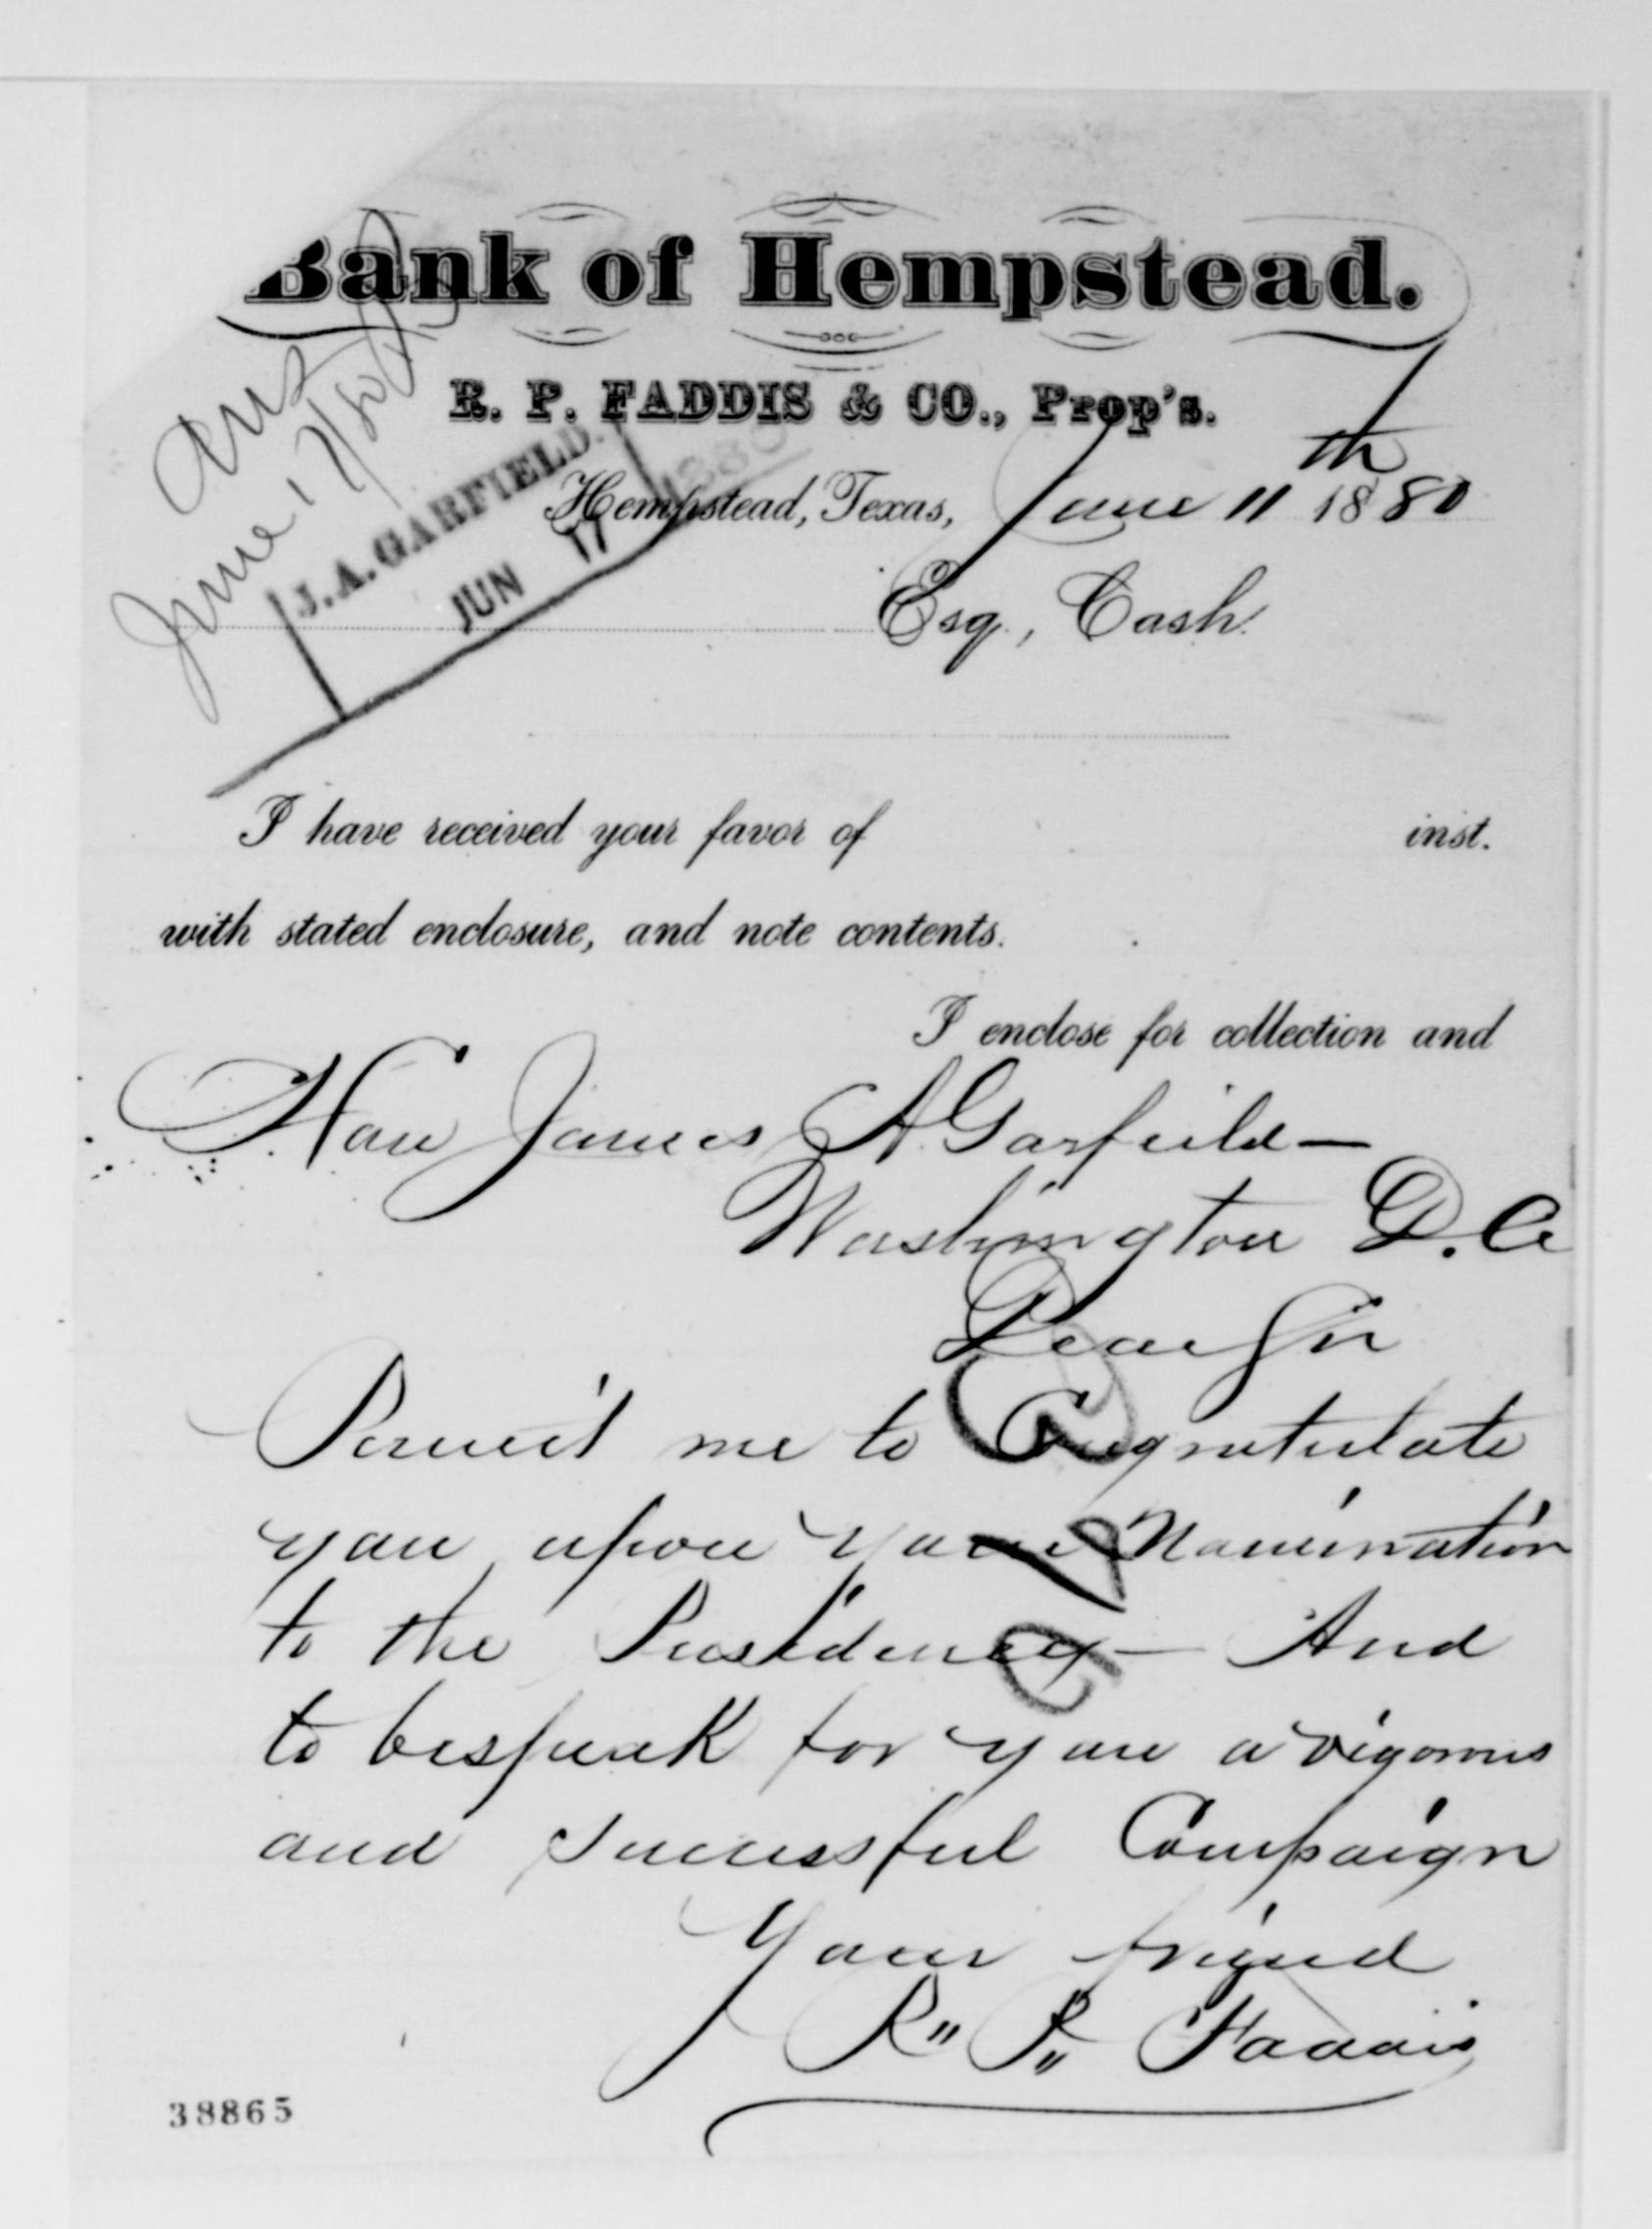 Bank of Hempstead.
R. P. FADDIS & CO., Prop's.
Hempstead, Texas, June 11th 1880
Ans
June 17/80
J. A. GARFIELD.
JUN 17 1880
Esq., Cash.
I have received your favor of inst.
with stated enclosure, and note contents.
I enclose for collection and
Hon James A Garfield—
Washington D.C
Dear Sir
Permit me to Congratulate
you upon your Nomination
to the Presidency — And
to bespeak for you a vigorous
and successful Campaign
Your friend
R" P" Faddis
38865